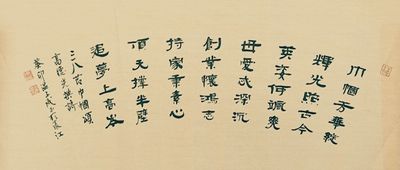 巾幗芳華綻
輝光照古今
英姿何颯爽
母愛忒深沉
創業懷鴻志
持家秉素心
頂天撐半壁
追夢上高岑
三八 巾幗頌
高德光撰詩
癸卯